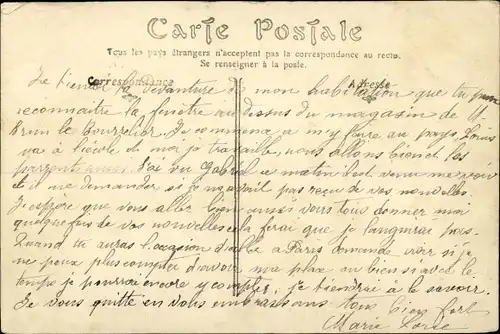 Carte Postale
Tous les pays étrangers n'acceptent pas la correspondance au recto.
Se renseigner à la poste.
Correspondance Adresse
la devanture de mon habitation que tu peux
reconnaitre la fenêtre au dessus du magasin de
le bourrelier. Je commence a m'y faire au pays, Louis
va à l'école et moi je travaille, nous allons bientôt les
J'ai vu Gabriel ce matin est venu me voir
et a me demander si je n'avait pas reçu de vos nouvelles
J'espere que vous aller bien vous tous donner moi
quelque fois de vos nouvelles cela ferai que je languirai pas.
Quand tu auras l'occasion d'allé a Paris demande voir si je
ne peux plus compter d'avoir ma place ou bien si avec le
temps je pourrai encore y compter, je tiendrai à le savoir.
Je vous quitte en vous embrassans tous bien fort
Marie